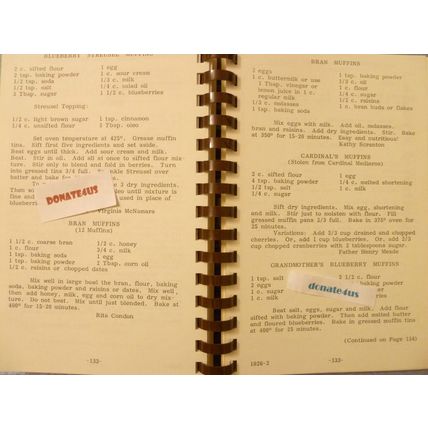 BLUEBERRY STREUSEL MUFFINS
2 c. sifted flour 1 egg
2 tsp. baking powder 1 c. sour cream
1/2 tsp. soda 1/3 c. milk
1/2 tsp. salt 1/4 c. salad oil
3 Tbsp. sugar 1 1/2 c. blueberries
Streusel Topping:
1/2 c. light brown sugar 1 tsp. cinnamon
1/4 c. unsifted flour 3 Tbsp. oleo
Set oven temperature at 425°. Grease muffin
tins. Sift first five ingredients and set aside.
Beat eggs until thick. Add sour cream and milk.
Beat. Stir in oil. Add all at once to sifted flour mix-
ture. Stir only to blend and fold in berries. Turn
into greased tins 3/4 full. Sprinkle Streusel over
batter and bake
To 3 dry ingredients.
Then oleo until mixture is
fine and used in place of
blueberries
DONATE4US
Virginia McNamara
BRAN MUFFINS
(12 Muffins)
1 1/2 c. coarse bran 1/2 c. honey
1 c. flour 3/4 c. milk
1 tsp. baking soda 1 egg
1 tsp. baking powder 1 Tbsp. corn oil
1/2 c. raisins or chopped dates
Mix well in large bowl the bran, flour, baking
soda, baking powder and raisins or dates. Mix well,
then add honey, milk, egg and corn oil to dry mix-
ture. Do not beat. Mix until just blended. Bake at
400° for 15-20 minutes.
Rita Condon
-132-
BRAN MUFFINS
2 eggs 1 tsp. baking powder
1 c. buttermilk or use 1/2 c. oil
1 Tbsp. vinegar or 1 c. flour
lemon juice in 1 c. 1/4 c. sugar
regular milk 1/2 c. raisins
1/2 c. molasses 1 c. bran buds or flakes
1 tsp. baking soda
Mix eggs with milk. Add oil, molasses,
bran and raisins. Add dry ingredients. Stir. Bake
at 350° for 15-20 minutes. Easy and nutritious!
Kathy Scranton
CARDINAL'S MUFFINS
(Stolen from Cardinal Medieros)
2 c. sifted flour 1 egg
1 Tbsp. baking powder 1/4 c. melted shortening
1/2 tsp. salt 1 c. milk
1/4 c. sugar
Sift dry ingredients. Mix egg, shortening
and milk. Stir just to moisten with flour. Fill
greased muffin pans 2/3 full. Bake in 375° oven for
25 minutes.
Variations: Add 2/3 cup drained and chopped
cherries. Or, add 1 cup blueberries. Or, add 2/3
cup chopped cranberries with 2 tablespoons sugar.
Father Henry Meade
GRANDMOTHER'S BLUEBERRY MUFFINS
1 tsp. salt 2 1/2 c. flour
2 eggs baking powder
1 c. sugar
1 c. milk
donate4us
Beat salt, eggs, sugar and milk. Add flour
sifted with baking powder. Then add melted butter
and floured blueberries. Bake in greased muffin tins
at 400° for 25 minutes.
(Continued on Page 134)
1826-2 -133-